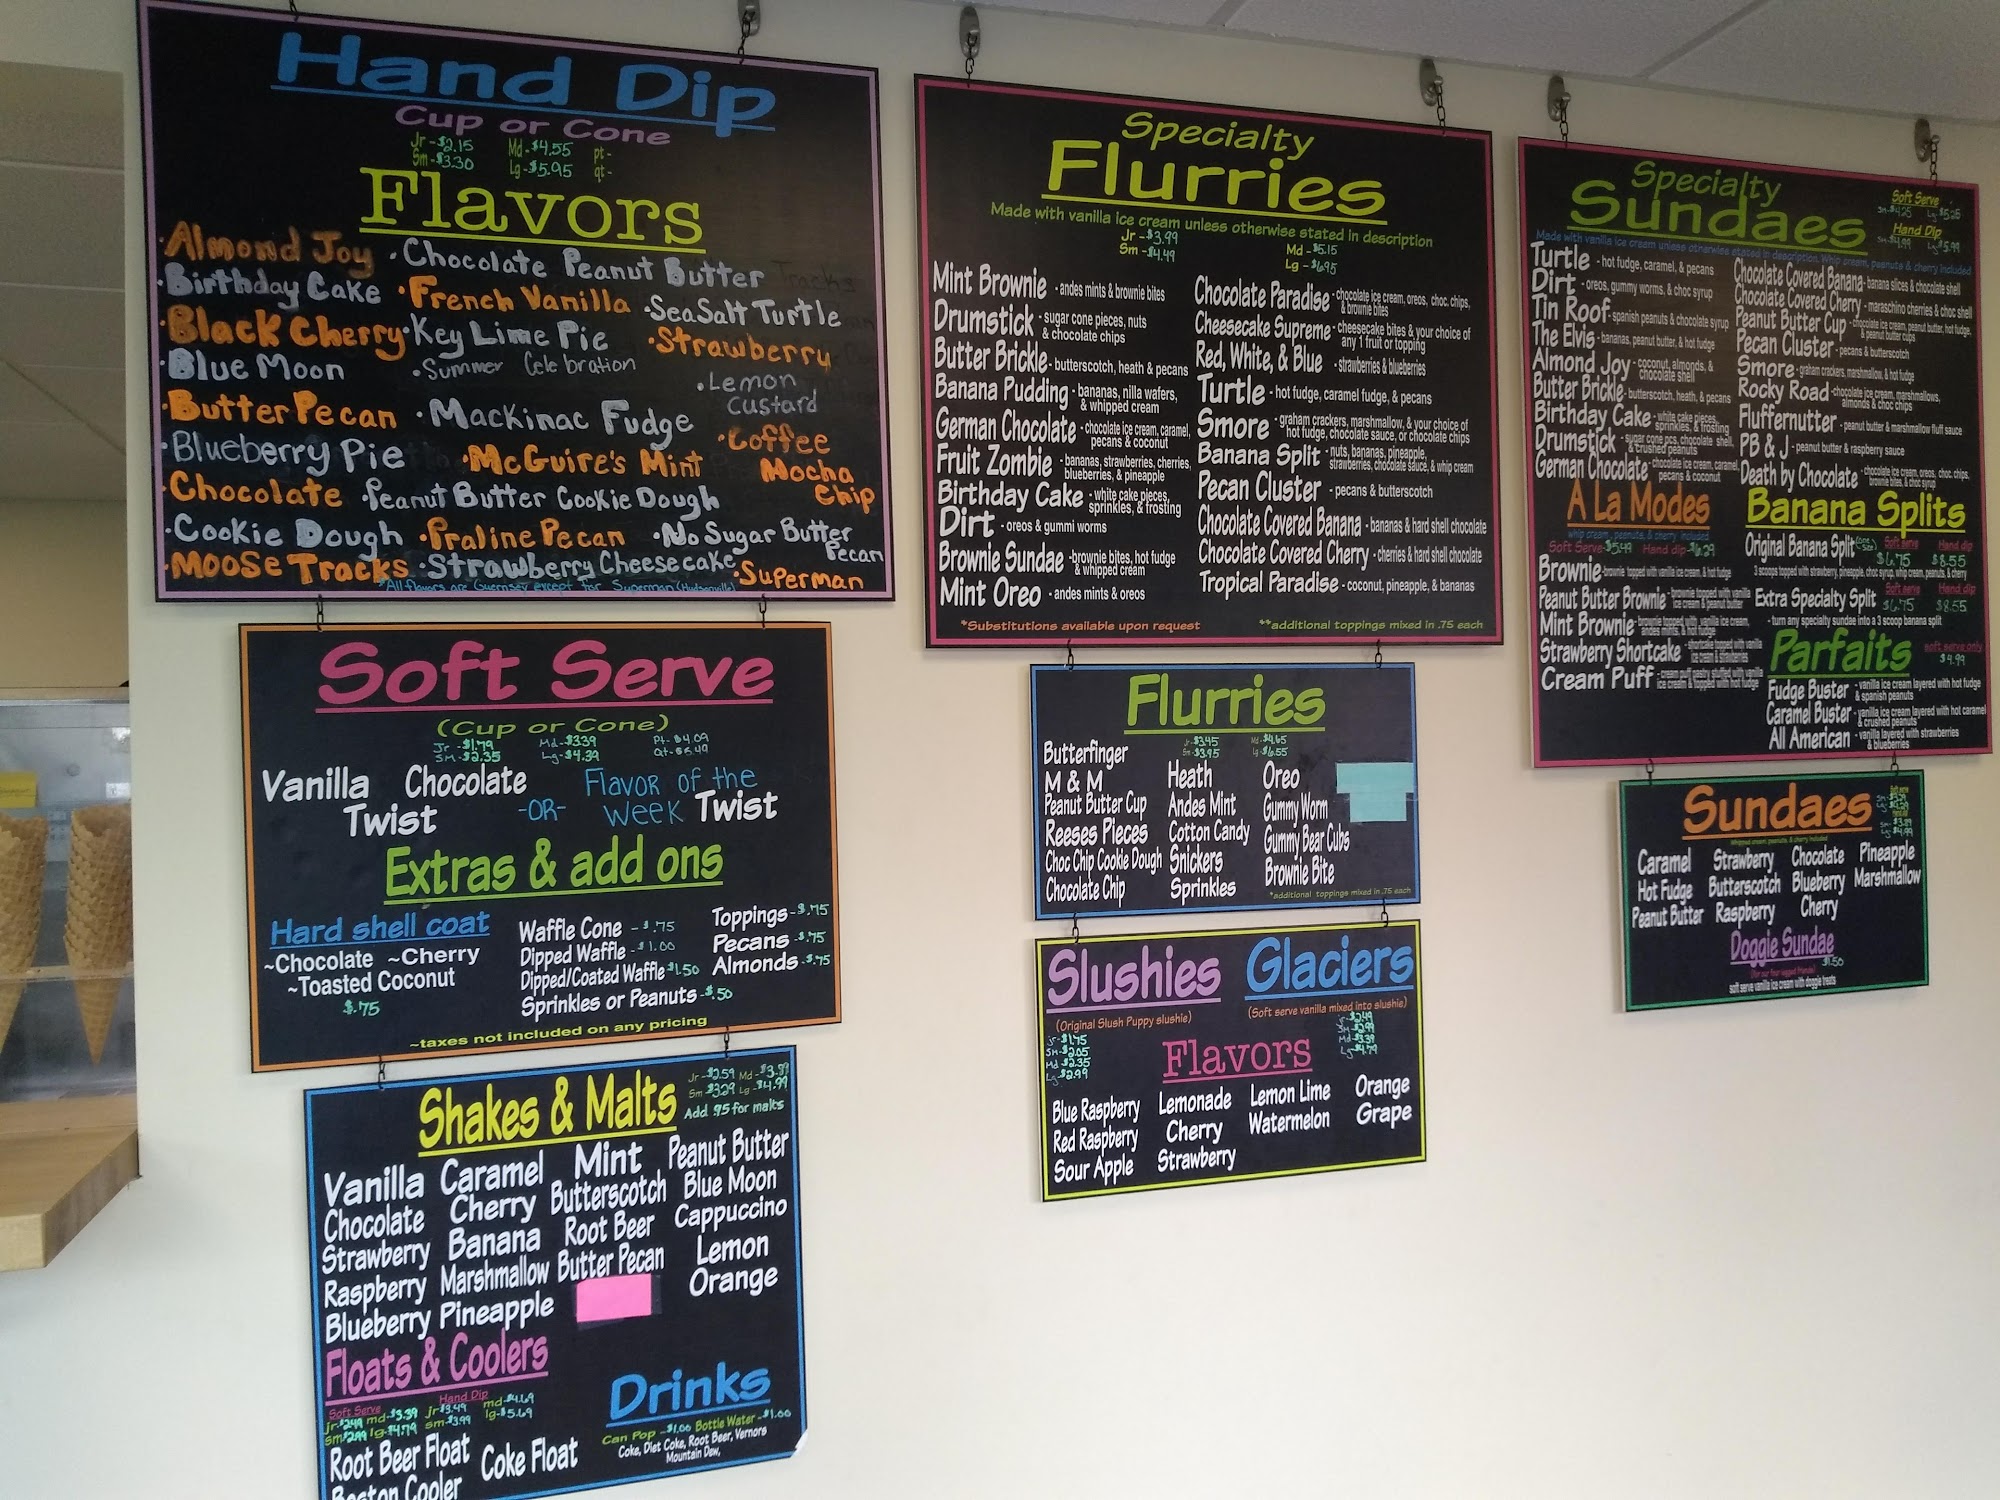 Hand Dip
Cup or Cone
Jr - $2.15 Md - $4.55 pt -
Sm - $3.30 Lg - $5.95 qt -
Flavors
·Almond Joy
·Birthday Cake
·Black Cherry
·Blue Moon
·Butter Pecan
·Blueberry Pie
·Chocolate
·Cookie Dough
·Moose Tracks
·Chocolate Peanut Butter
·French Vanilla
·Key Lime Pie
·Summer Celebration
·Mackinac Fudge
·McGuire's Mint
·Peanut Butter Cookie Dough
·Praline Pecan
·Strawberry Cheesecake
·Sea Salt Turtle
·Strawberry
·Lemon
Custard
·Coffee
Mocha
Chip
·No Sugar Butter
Pecan
·Superman
*All flavors are Guernsey except for Superman (Hudsonville)
Soft Serve
(Cup or Cone)
Jr - $1.79 Md - $3.39 Pt - $4.09
Sm - $2.35 Lg - $4.39 Qt - $5.49
Vanilla Chocolate
Twist
-OR-
Flavor of the
Week Twist
Extras & add ons
Hard shell coat
~Chocolate ~Cherry
~Toasted Coconut
$.75
Waffle Cone - $.75
Dipped Waffle - $1.00
Dipped/Coated Waffle $1.50
Sprinkles or Peanuts - $.50
Toppings - $.75
Pecans - $.75
Almonds - $.75
~taxes not included on any pricing
Shakes & Malts
Jr - $2.59 Md - $3.89
Sm - $3.29 Lg - $4.99
Add .95 for malts
Vanilla
Chocolate
Strawberry
Raspberry
Blueberry
Caramel
Cherry
Banana
Marshmallow
Pineapple
Mint
Butterscotch
Root Beer
Butter Pecan
Peanut Butter
Blue Moon
Cappuccino
Lemon
Orange
Floats & Coolers
Soft Serve
jr - $2.49 md - $3.39
sm $2.99 lg - $4.79
Hand Dip
jr $3.49 md - $4.69
sm - $3.99 lg - $5.69
Root Beer Float
Boston Cooler
Coke Float
Drinks
Can Pop - $1.00 Bottle Water - $1.00
Coke, Diet Coke, Root Beer, Vernors
Mountain Dew,
Specialty
Flurries
Made with vanilla ice cream unless otherwise stated in description
Jr - $3.99 Md - $5.15
Sm - $4.49 Lg - $6.95
Mint Brownie - andes mints & brownie bites
Drumstick - sugar cone pieces, nuts
& chocolate chips
Butter Brickle - butterscotch, heath & pecans
Banana Pudding - bananas, nilla wafers,
& whipped cream
German Chocolate - chocolate ice cream, caramel,
pecans & coconut
Fruit Zombie - bananas, strawberries, cherries,
blueberries, & pineapple
Birthday Cake - white cake pieces,
sprinkles, & frosting
Dirt - oreos & gummi worms
Brownie Sundae - brownie bites, hot fudge
& whipped cream
Mint Oreo - andes mints & oreos
Chocolate Paradise - chocolate ice cream, oreos, choc. chips,
& brownie bites
Cheesecake Supreme - cheesecake bites & your choice of
any 1 fruit or topping
Red, White, & Blue - strawberries & blueberries
Turtle - hot fudge, caramel fudge, & pecans
Smore - graham crackers, marshmallow, & your choice of
hot fudge, chocolate sauce, or chocolate chips
Banana Split - nuts, bananas, pineapple,
strawberries, chocolate sauce, & whip cream
Pecan Cluster - pecans & butterscotch
Chocolate Covered Banana - bananas & hard shell chocolate
Chocolate Covered Cherry - cherries & hard shell chocolate
Tropical Paradise - coconut, pineapple, & bananas
*Substitutions available upon request
**additional toppings mixed in .75 each
Flurries
Jr - $3.45 Md - $4.65
Sm - $3.95 Lg - $6.55
Butterfinger
M & M
Peanut Butter Cup
Reeses Pieces
Choc Chip Cookie Dough
Chocolate Chip
Heath
Andes Mint
Cotton Candy
Snickers
Sprinkles
Oreo
Gummy Worm
Gummy Bear Cubs
Brownie Bite
*additional toppings mixed in .75 each
Slushies
(Original Slush Puppy slushie)
Jr - $1.75
Sm - $2.05
Md - $2.35
Lg - $2.99
Glaciers
(Soft serve vanilla mixed into slushie)
Jr - $2.49
Sm - $2.99
Md - $3.39
Lg - $4.79
Flavors
Blue Raspberry
Red Raspberry
Sour Apple
Lemonade
Cherry
Strawberry
Lemon Lime
Watermelon
Orange
Grape
Specialty
Sundaes
Soft Serve
Sm - $4.25 Lg - $5.25
Hand Dip
Sm - $4.99 Lg - $5.99
Made with vanilla ice cream unless otherwise stated in description. Whip cream, peanuts & cherry included
Turtle - hot fudge, caramel, & pecans
Dirt - oreos, gummy worms, & choc syrup
Tin Roof - spanish peanuts & chocolate syrup
The Elvis - bananas, peanut butter, & hot fudge
Almond Joy - coconut, almonds, &
chocolate shell
Butter Brickle - butterscotch, heath, & pecans
Birthday Cake - white cake pieces,
sprinkles, & frosting
Drumstick - sugar cone pcs, chocolate shell,
& crushed peanuts
German Chocolate - chocolate ice cream, caramel,
pecans & coconut
Chocolate Covered Banana - banana slices & chocolate shell
Chocolate Covered Cherry - maraschino cherries & choc shell
Peanut Butter Cup - chocolate ice cream, peanut butter, hot fudge,
& peanut butter cups
Pecan Cluster - pecans & butterscotch
Smore - graham crackers, marshmallow, & hot fudge
Rocky Road - chocolate ice cream, marshmallows,
almonds & choc chips
Fluffernutter - peanut butter & marshmallow fluff sauce
PB & J - peanut butter & raspberry sauce
Death by Chocolate - chocolate ice cream, oreos, choc. chips,
brownie bites, & choc syrup
A La Modes
whip cream, peanuts, & cherry included
Soft Serve - $5.49 Hand dip - $6.29
Brownie - brownie topped with vanilla ice cream, & hot fudge
Peanut Butter Brownie - brownie topped with vanilla
ice cream & peanut butter
Mint Brownie - brownie topped with vanilla ice cream,
andes mints, & hot fudge
Strawberry Shortcake - shortcake topped with vanilla
ice cream & strawberries
Cream Puff - cream puff pastry stuffed with vanilla
ice cream & topped with hot fudge
Banana Splits
Original Banana Split (one size) Soft serve Hand dip
$6.75 $8.55
3 scoops topped with strawberry, pineapple, choc syrup, whip cream, peanuts, & cherry
Extra Specialty Split Soft serve Hand dip
$6.75 $8.55
- turn any specialty sundae into a 3 scoop banana split
Parfaits soft serve only
$4.99
Fudge Buster - vanilla ice cream layered with hot fudge
& spanish peanuts
Caramel Buster - vanilla ice cream layered with hot caramel
& crushed peanuts
All American - vanilla layered with strawberries
& blueberries
Sundaes
Whipped cream, peanuts, & cherry included
Caramel
Hot Fudge
Peanut Butter
Strawberry
Butterscotch
Raspberry
Chocolate
Blueberry
Cherry
Pineapple
Marshmallow
Doggie Sundae
$1.50
(for our four legged friends)
soft serve vanilla ice cream with doggie treats